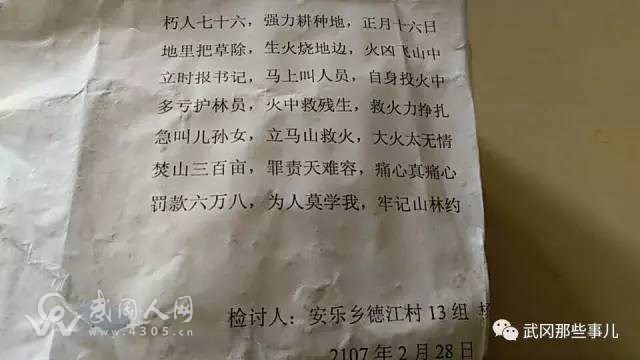 朽人七十六，强力耕种地，正月十六日
地里把草除，生火烧地边，火凶飞山中
立时报书记，马上叫人员，自身投火中
多亏护林员，火中救残生，救火力挣扎
急叫儿孙女，立马山救火，大火太无情
焚山三百亩，罪责天难容，痛心真痛心
罚款六万八，为人莫学我，牢记山林约
检讨人：安乐乡德江村13组
2107年2月28日
武冈人网
www.4305.cn
武冈那些事儿